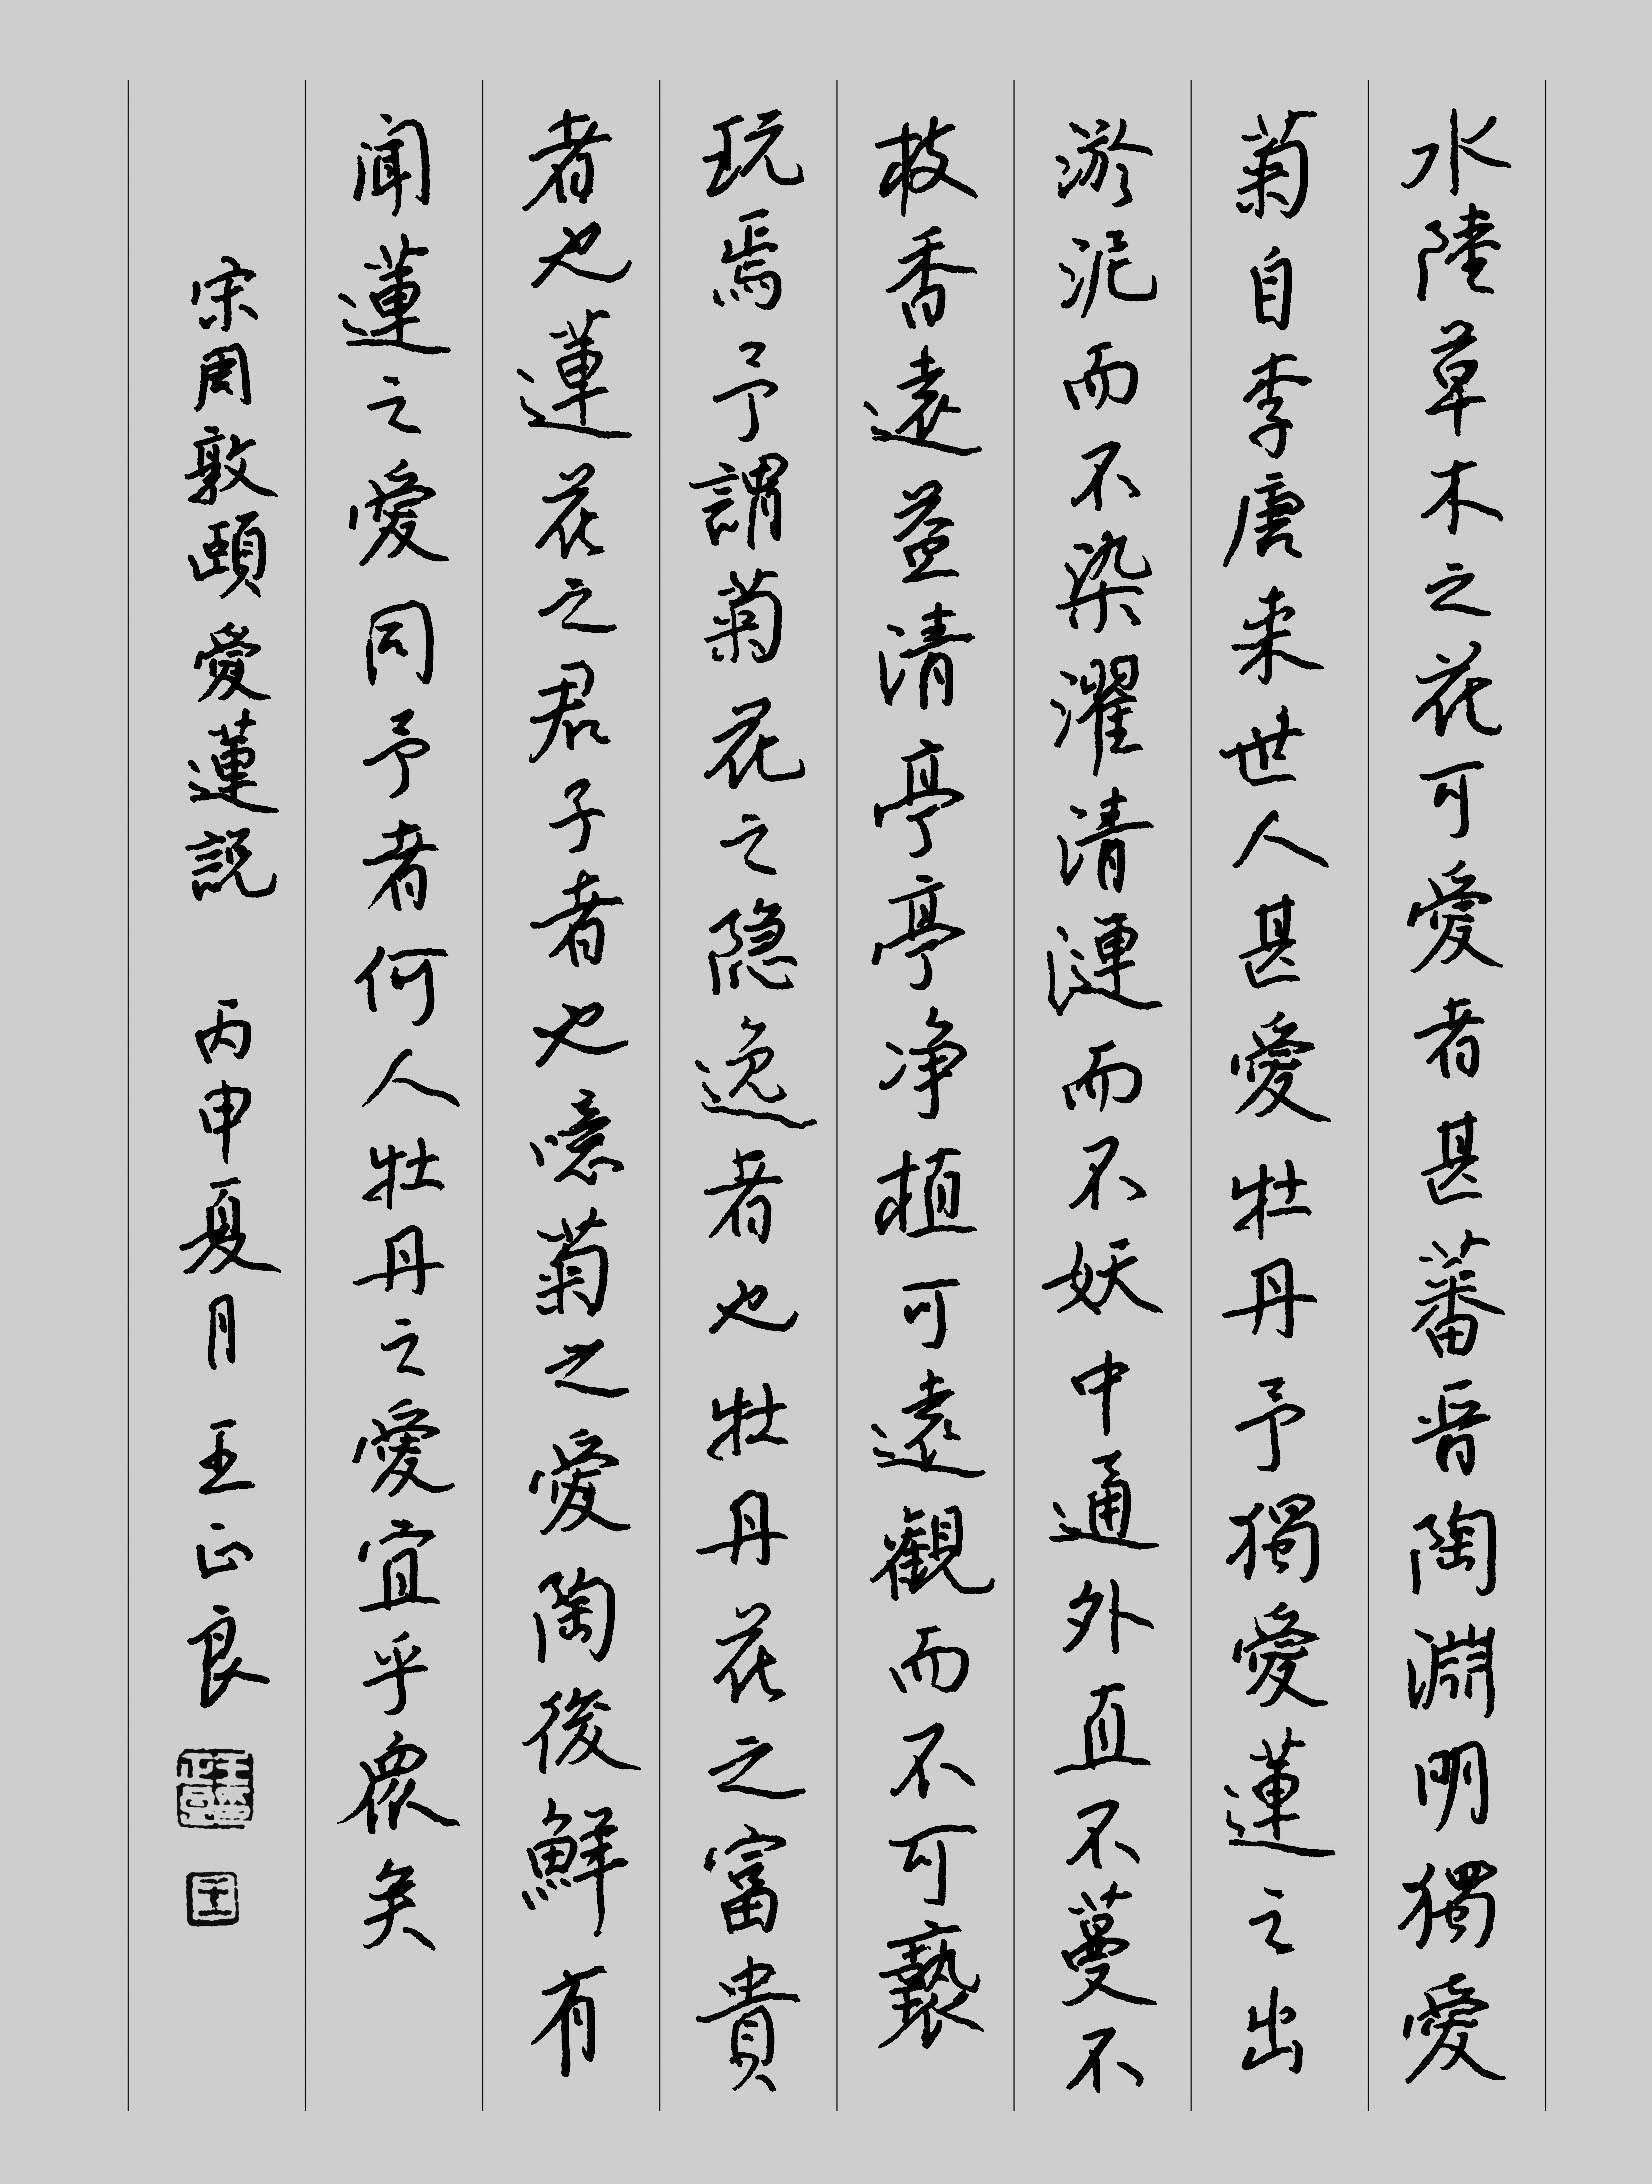 水陸草木之花可愛者甚蕃晉陶淵明獨愛
菊自李唐来世人甚愛牡丹予獨愛蓮之出
淤泥而不染濯清漣而不妖中通外直不蔓不
枝香遠益清亭亭净植可遠觀而不可褻
玩焉予謂菊花之隐逸者也牡丹花之富貴
者也蓮花之君子者也噫菊之愛陶後鮮有
闻蓮之愛同予者何人牡丹之愛宜乎眾矣
宋周敦頤愛蓮説 丙申夏月 王正良